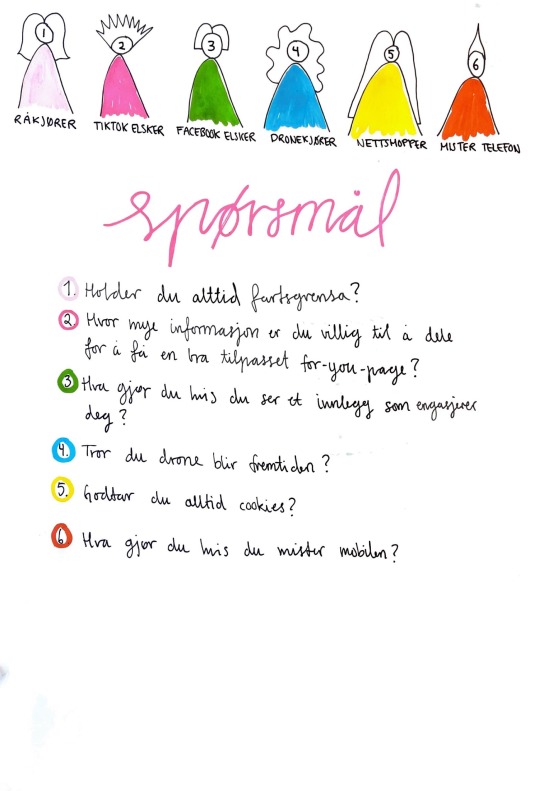 1 2 3 4 5 6
RÅKJØRER TIKTOK ELSKER FACEBOOK ELSKER DRONEKJØRER NETTSHOPPER MISTER TELEFON
spørsmål
1. Holder du alltid fartsgrensa?
2. Hvor mye informasjon er du villig til å dele
for å få en bra tilpasset for-you-page?
3 Hva gjør du hvis du ser et innlegg som engasjerer
deg?
4. Tror du drone blir fremtiden?
5. Godtar du alltid cookies?
6 Hva gjør du hvis du mister mobilen?